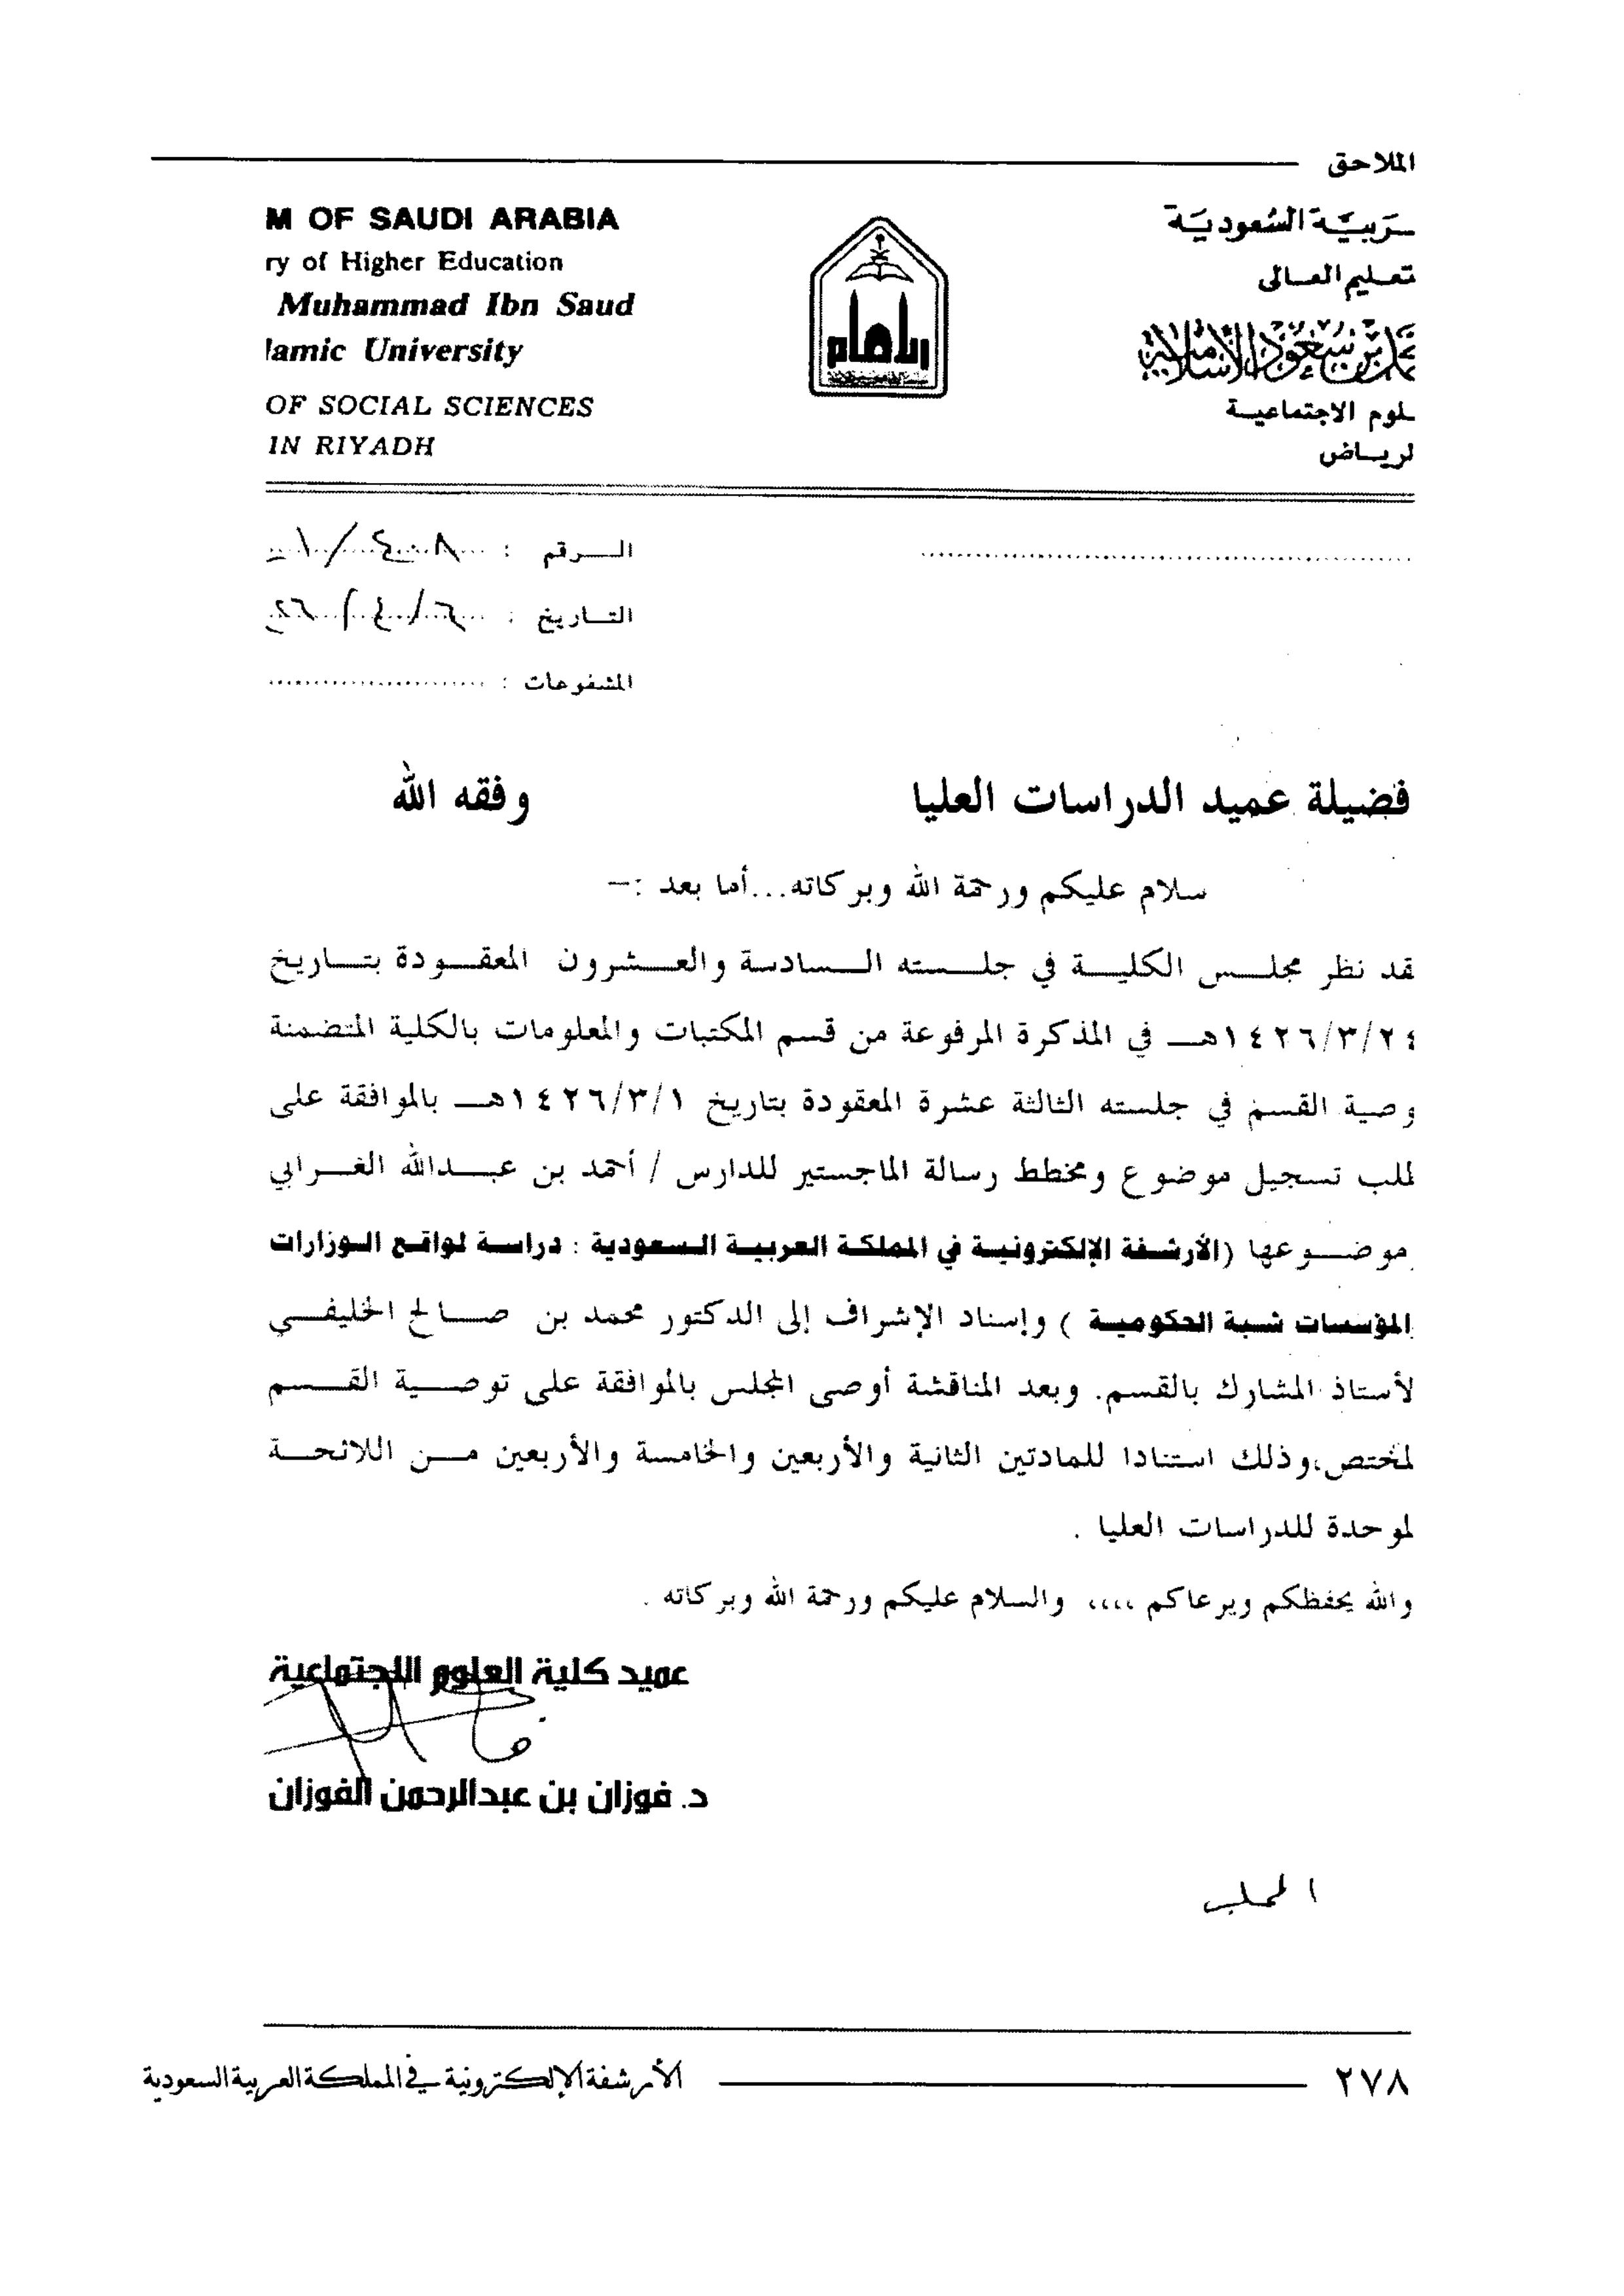 الملاحق
M OF SAUDI ARABIA
ry of Higher Education
Muhammad Ibn Saud
lamic University
OF SOCIAL SCIENCES
IN RIYADH
ـربيـة السعودية
تعـليم العـالى
محمد بن سعود الإسلامية
ـلوم الاجتماعيـة
لريـاض
الـــرقم :
التـاريخ :
المشفوعات :
فضيلة عميد الدراسات العليا وفقه الله
سلام عليكم ورحمة الله وبركاته...أما بعد :–
قد نظر مجلس الكلية في جلسته السادسة والعشرون المعقودة بتاريخ
١٤٢٦/٣/٢٤هـ في المذكرة المرفوعة من قسم المكتبات والمعلومات بالكلية المتضمنة
وصية القسم في جلسته الثالثة عشرة المعقودة بتاريخ ١٤٢٦/٣/١هـ بالموافقة على
لملب تسجيل موضوع ومخطط رسالة الماجستير للدارس / أحمد بن عبدالله الغرابي
موضوعها (الأرشفة الإلكترونية في المملكة العربية السعودية : دراسة لواقع الوزارات
المؤسسات شبة الحكومية ) وإسناد الإشراف إلى الدكتور محمد بن صالح الخليفي
لأستاذ المشارك بالقسم. وبعد المناقشة أوصى المجلس بالموافقة على توصية القسم
لمختص،وذلك استنادا للمادتين الثانية والأربعين والخامسة والأربعين من اللائحة
لموحدة للدراسات العليا .
والله يحفظكم ويرعاكم ،،،، والسلام عليكم ورحمة الله وبركاته .
عميد كلية العلوم الاجتماعية
د. فوزان بن عبدالرحمن الفوزان
٢٧٨ الأرشفة الإلكترونية في المملكة العربية السعودية